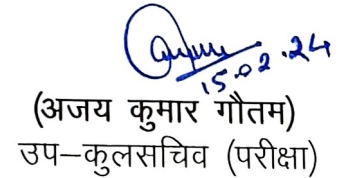 15.02.24
(अजय कुमार गौतम)
उप–कुलसचिव (परीक्षा)